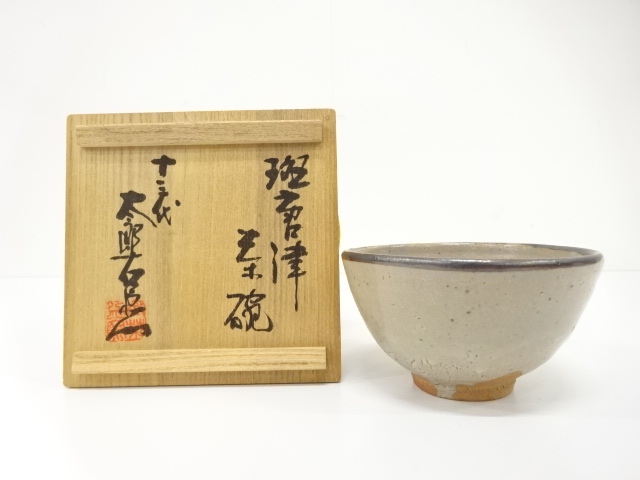 斑唐津
茶碗
十三代
太郎右衛門